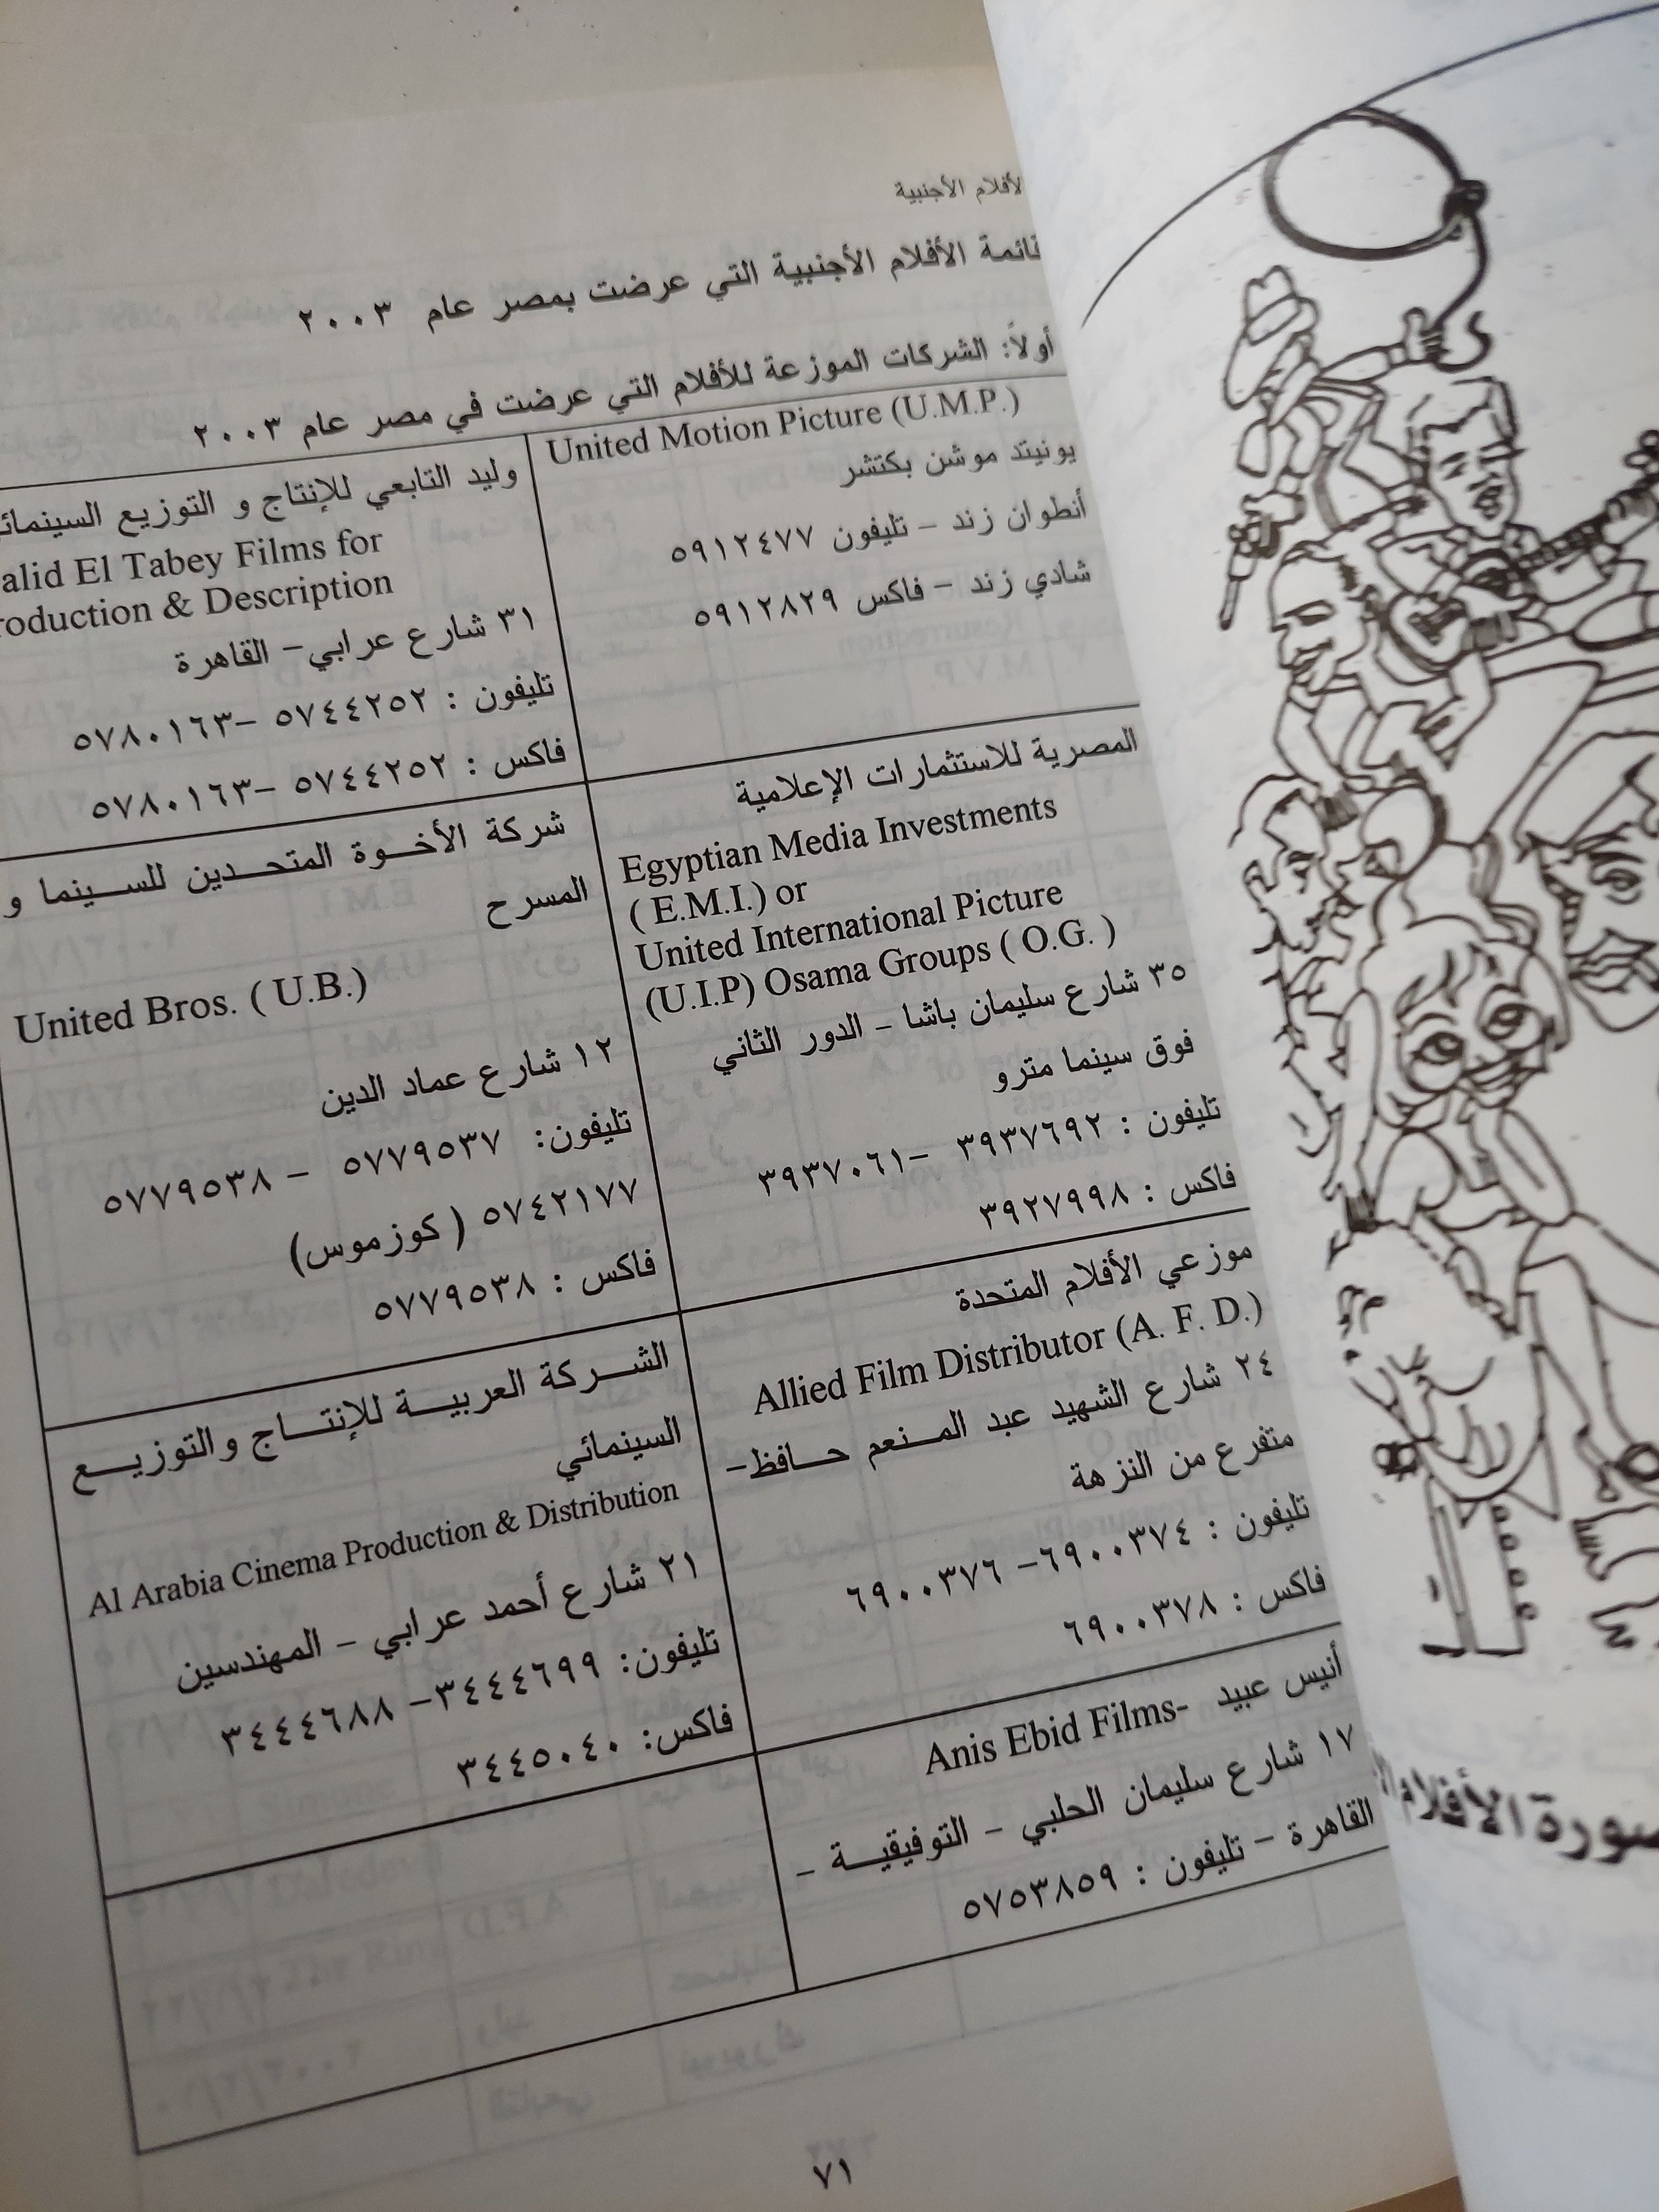 الأفلام الأجنبية
قائمة الأفلام الأجنبية التي عرضت بمصر عام ٢٠٠٣
أولاً: الشركات الموزعة للأفلام التي عرضت في مصر عام ٢٠٠٣
United Motion Picture (U.M.P.)
يونيتد موشن بكتشر
أنطوان زند – تليفون ٥٩١٢٤٧٧
شادي زند – فاكس ٥٩١٢٨٢٩
وليد التابعي للإنتاج و التوزيع السينمائي
alid El Tabey Films for
roduction & Description
٣١ شارع عرابي– القاهرة
تليفون : ٥٧٤٤٢٥٢ –٥٧٨٠١٦٣
فاكس : ٥٧٤٤٢٥٢ –٥٧٨٠١٦٣
المصرية للاستثمارات الإعلامية
Egyptian Media Investments
( E.M.I.) or
United International Picture
(U.I.P) Osama Groups ( O.G. )
٣٥ شارع سليمان باشا – الدور الثاني
فوق سينما مترو
تليفون : ٣٩٣٧٦٩٢ –٣٩٣٧٠٦١
فاكس : ٣٩٢٧٩٩٨
شركة الأخوة المتحدين للسينما و
المسرح
United Bros. ( U.B.)
١٢ شارع عماد الدين
تليفون: ٥٧٧٩٥٣٧ – ٥٧٧٩٥٣٨
٥٧٤٢١٧٧ ( كوزموس)
فاكس : ٥٧٧٩٥٣٨
موزعي الأفلام المتحدة
Allied Film Distributor (A. F. D.)
٢٤ شارع الشهيد عبد المنعم حافظ–
متفرع من النزهة
تليفون : ٦٩٠٠٣٧٤– ٦٩٠٠٣٧٦
فاكس : ٦٩٠٠٣٧٨
الشركة العربية للإنتاج والتوزيع
السينمائي
Al Arabia Cinema Production & Distribution
٢١ شارع أحمد عرابي – المهندسين
تليفون: ٣٤٤٤٦٩٩– ٣٤٤٤٦٨٨
فاكس: ٣٤٤٥٠٤٠
أنيس عبيد Anis Ebid Films-
١٧ شارع سليمان الحلبي – التوفيقية –
القاهرة – تليفون : ٥٧٥٣٨٥٩
٧١
صورة الأفلام